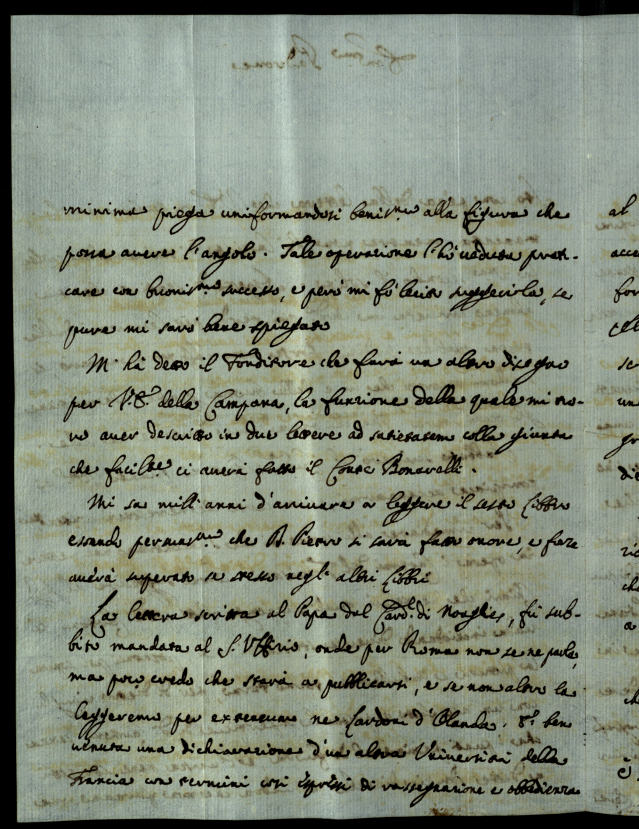 minima piega uniformandosi benis.mo alla figura che
possa avere l'angolo. Tale operazione l'hò veduta prati-
care con buonis.mo successo, e però mi fò lecito suggerirla, se
pure mi sarò bene spiegato
M'hà detto il Fonditore che farà un altro disegno
per V.S. della Campana, la funzione della quale mi tro-
vo aver descritto in due lettere ad satietatem colla giunta
che facilm.te ci averà fatto il Conte Bonavalli.
Mi sa mill'anni d'arrivare a leggere il sesto Libbro
essendo persuas.mo che B. Pietro si sarà fatto onore, e forse
averà superato se stesso negl'altri Libbri
La lettera scritta al Papa dal Card.l di Noaglies, fù sub-
bito mandata al S. Uffizio, onde per Roma non se ne parla,
ma poco credo che starà a pubblicarsi, e se non altro la
leggeremo per extensum ne Lardoni d'Olanda. È ben
venuta una dichiarazione d'un altra Università della
Francia con termini così espressi di rassegnazione e obbedienza
al
acce
for
se
un
gr
die
che
a
ch